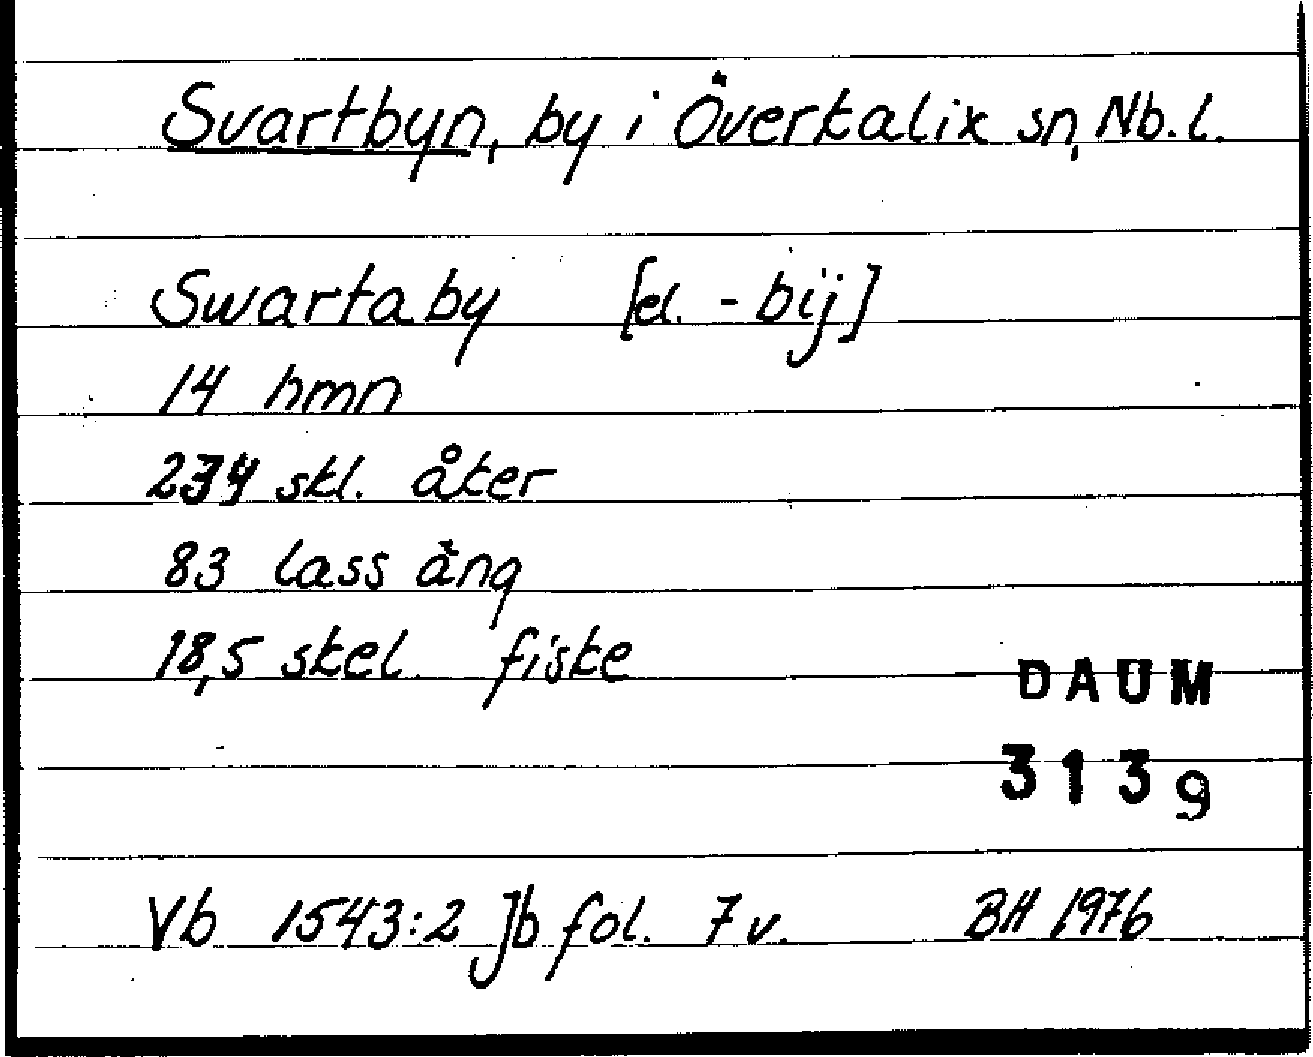 Svartbyn, by i Överkalix sn, Nb. l.
Swartaby [el. - bij]
14 hmn
234 skl. åker
83 lass äng
18,5 skel. fiske
DAUM
3139
Vb 1543:2 Jb fol. 7 v. BH 1976